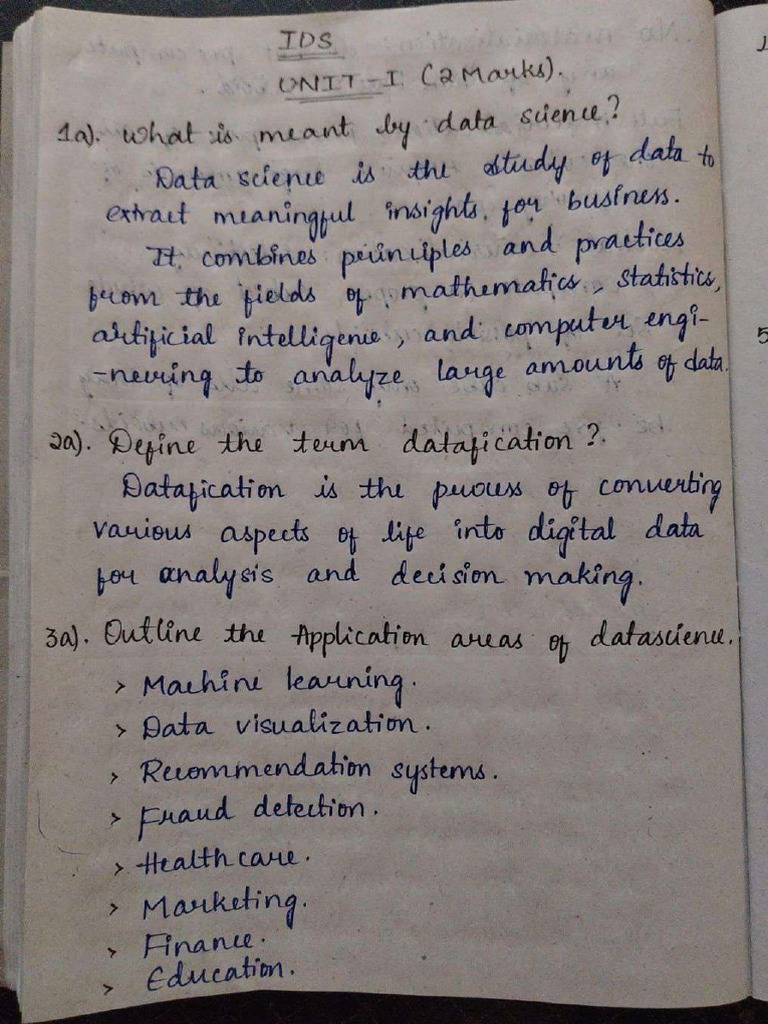 IDS
UNIT-I (2 Marks).
1a). What is meant by data science?
Data science is the study of data to
extract meaningful insights for business.
It combines principles and practices
from the fields of mathematics, statistics,
artificial intelligence, and computer engi-
-neering to analyze large amounts of data.
2a). Define the term datafication?.
Datafication is the process of converting
various aspects of life into digital data
for analysis and decision making.
3a). Outline the Application areas of datascience.
> Machine learning.
> Data visualization.
> Recommendation systems.
> Fraud detection.
> Healthcare.
> Marketing.
> Finance.
> Education.
5